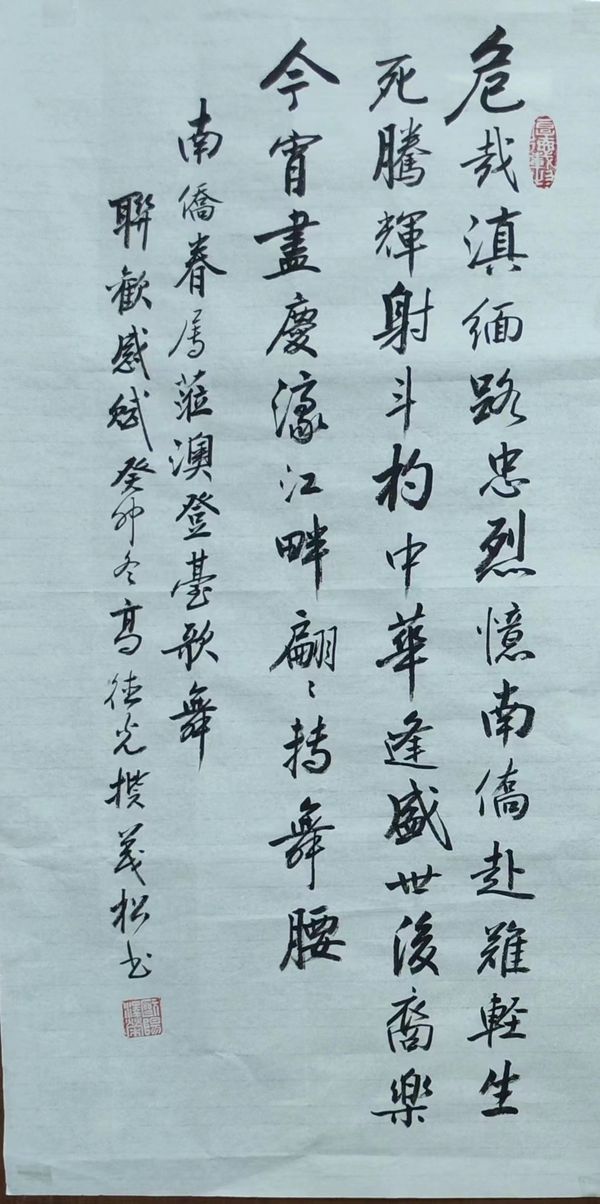 危哉滇緬路忠烈憶南僑赴難輕生
死騰輝射斗杓中華逢盛世後裔樂
今宵盡慶濠江畔翩翩轉舞腰
南僑眷屬蒞澳登臺歌舞
聯歡感賦癸卯冬高德光撰義松书